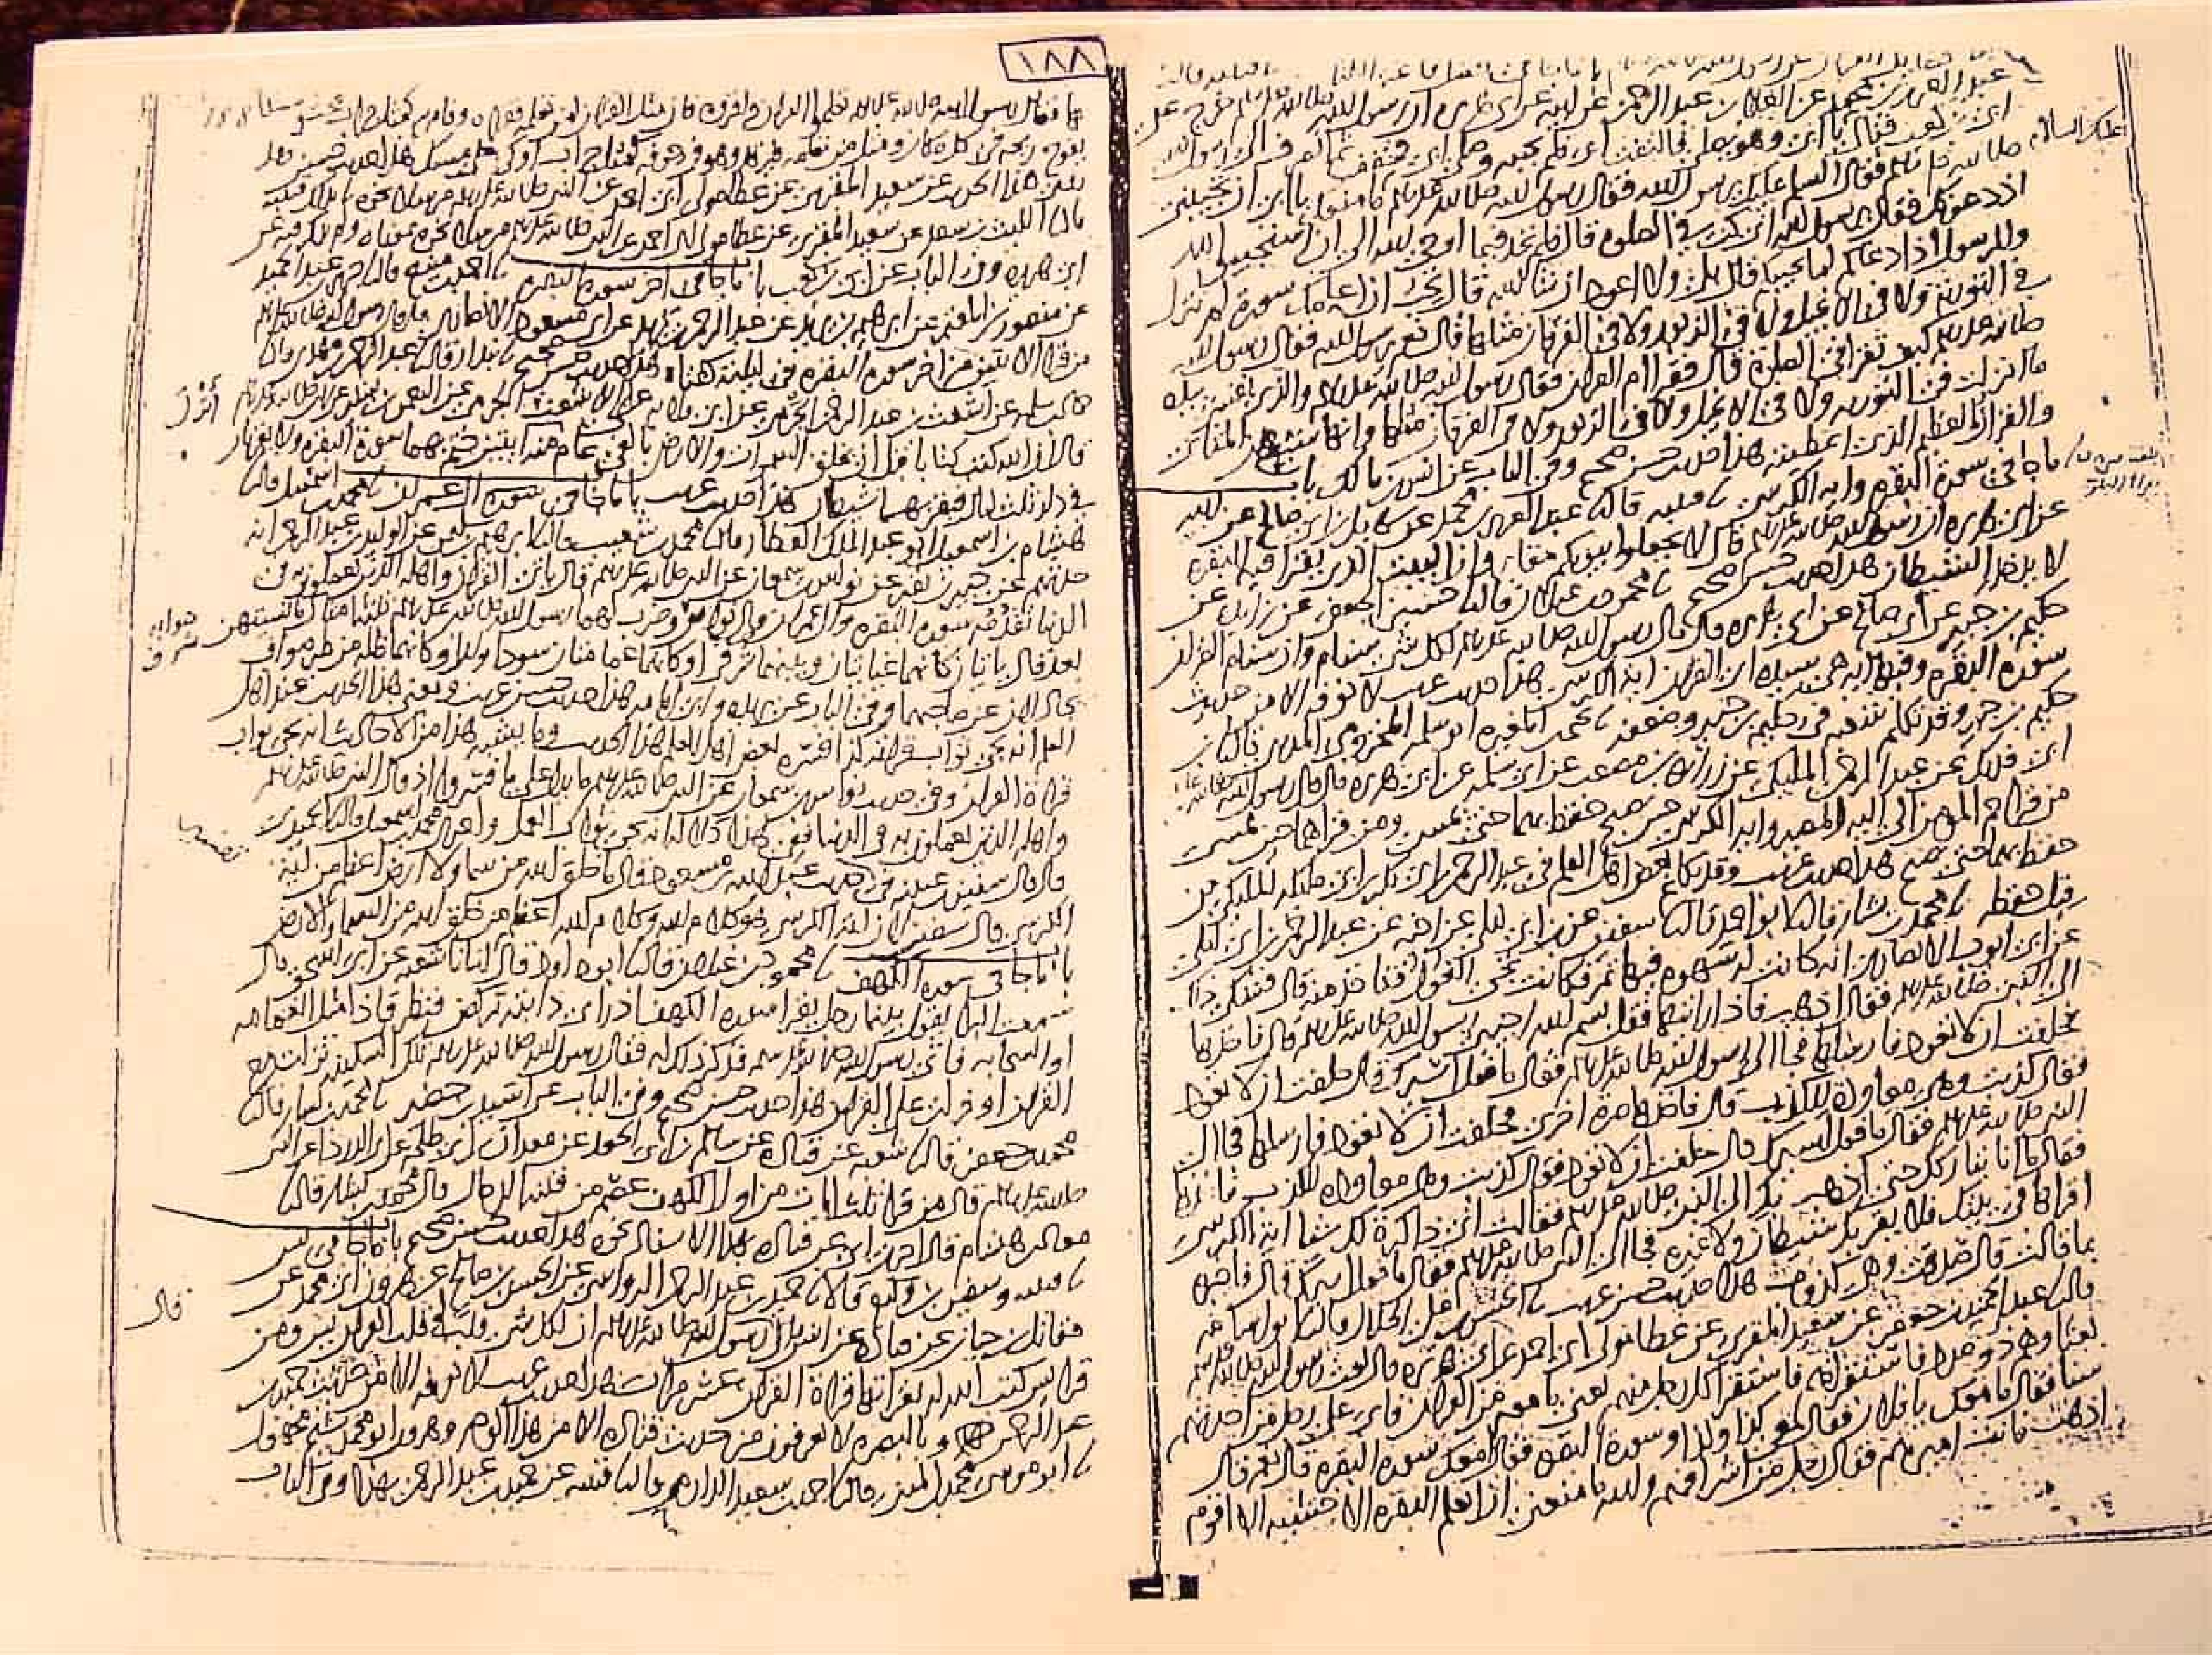 عبد العزيز بن محمد عن العلا بن عبد الرحمن عن ابيه عن ابي هريره ان رسول الله صلى الله عليه وسلم خرج على
ابي بن كعب فقال يا ابي وهو يصلي فالتفت ابي فلم يجبه وصلى ابي فخفف ثم انصرف الى رسول الله
صلى الله عليه وسلم فقال السلام عليك يرسول الله فقال رسول الله صلى الله عليه وسلم ما منعك يا ابي ان تجيبني
اذ دعوتك فقال يرسول الله اني كنت في الصلوه قال فلم تجد فيما اوحى الله الي ان استجيبوا لله
وللرسول اذا دعاكم لما يحييكم قال بلى ولا اعود ان شا الله قال اتحب ان اعلمك سورة لم ينزل
في التوريه ولا في الانجيل ولا في الزبور ولا في الفرقان مثلها قال نعم يرسول الله فقال رسول الله
صلى الله عليه وسلم كيف تقرا في الصلوة قال فقرا ام القران فقال رسول الله صلى الله عليه وسلم والذي نفسي بيده
ما انزلت في التوريه ولا في الانجيل ولا في الزبور ولا في الفرقان مثلها وانها سبع من المثاني
والقران العظيم الذي اعطيته هذا حديث حسن صحيح وفي الباب عن انس بن مالك باب
ما جا في سورة البقره وايه الكرسي قتيبه قال عبد العزيز بن محمد عن سهيل بن ابي صالح عن ابيه
عن ابي هريره ان رسول الله صلى الله عليه وسلم قال لا تجعلوا بيوتكم مقابر وان البيت الذي يقرا فيه البقره
لا يدخله الشيطان هذا حديث حسن صحيح محمود بن غيلان قال حسين الجعفي عن زايده عن
حكيم بن جبير عن ابي صالح عن ابي هريره قال قال رسول الله صلى الله عليه وسلم لكل شي سنام وان سنام القران
سوره البقره وفيها ايه هي سيده اي القران ايه الكرسي هذا حديث غريب لا نعرفه الا من حديث
حكيم بن جبير وقد تكلم شعبه في حكيم بن جبير وضعفه يحيى بن المغيره ابو سلمه المخزومي المديني قال ابن
ابي فديك عن عبد الرحمن المليكي عن زراره بن مصعب عن ابي سلمه عن ابي هريره قال قال رسول الله
من قرا حم المومن الى اليه المصير وايه الكرسي حين يصبح حفظ بهما حتى يمسي ومن قراهما حين يمسي
حفظ بهما حتى يصبح هذا حديث غريب وقد تكلم بعض اهل العلم في عبد الرحمن بن ابي بكر بن ابي مليكه المليكي من
قبل حفظه محمد بن بشار قال ابو احمد قال سفين عن ابن ابي ليلى عن اخيه عن عبد الرحمن بن ابي ليلى
عن ابي ايوب الانصاري انه كانت له سهوه فيها تمر فكانت تجي الغول فتاخذ منه قال فشكى ذاك
الى النبي صلى الله عليه وسلم فقال اذهب فاذا رايتها فقل بسم الله اجيبي رسول الله صلى الله عليه وسلم قال فاخذها
فحلفت ان لا تعود فارسلها فجا الى رسول الله صلى الله عليه وسلم فقال ما فعل اسيرك قال حلفت ان لا تعود
فقال كذبت وهي معاوده للكذب قال فاخذها مرة اخرى فحلفت ان لا تعود فارسلها فجا الى
النبي صلى الله عليه وسلم فقال ما فعل اسيرك قال حلفت ان لا تعود فقال كذبت وهي معاوده للكذب فاخذها
فقال ما انا بتاركك حتى اذهب بك الى النبي صلى الله عليه وسلم فقالت اني ذاكرة لك شيا ايه الكرسي
اقراها في بيتك فلا يقربك شيطان ولا غيره فجا الى النبي صلى الله عليه وسلم فقال ما فعل اسيرك قال فاخبره
بما قالت قال صدقت وهي كذوب هذا حديث حسن غريب الحسن بن علي الحلال قال ابو اسامه
قال عبد الحميد بن جعفر عن سعيد المقبري عن عطا مولى ابي احمد عن ابي هريره قال بعث رسول الله صلى الله عليه وسلم
بعثا وهم ذو عدد فاستقراهم فاستقرا كل رجل منهم يعني ما معه من القران فاتى على رجل من احدثهم
سنا فقال ما معك يا فلان فقال معي كذا وكذا وسورة البقره فقال امعك سورة البقره قال نعم قال
اذهب فانت اميرهم فقال رجل من اشرافهم والله ما منعني ان اتعلم البقره الا خشيه الا اقوم
عليه السلام
١٨٨
بها فقال رسول الله صلى الله عليه وسلم تعلموا القران واقروه فان مثل القران لمن تعلمه فقراه وقام به كمثل جراب محشو مسكا
يفوح ريحه في كل مكان ومثل من تعلمه فيرقد وهو في جوفه كمثل جراب اوكي على مسك هذا حديث حسن وقد
روي هذا الحديث عن سعيد المقبري عن عطا مولى ابي احمد عن النبي صلى الله عليه وسلم مرسلا نحوه
الليث بن سعد عن سعيد المقبري عن عطا مولى ابي احمد عن النبي صلى الله عليه وسلم مرسلا نحوه بمعناه ولم يذكر فيه عن
ابي هريره وفي الباب عن ابي بن كعب باب ما جا في اخر سورة البقره احمد بن منيع قال جرير بن عبد الحميد
عن منصور بن المعتمر عن ابرهيم بن يزيد عن عبد الرحمن بن يزيد عن ابي مسعود الانصاري قال قال رسول الله صلى الله عليه وسلم
من قرا الايتين من اخر سورة البقره في ليلة كفتاه هذا حديث حسن صحيح بندار قال عبد الرحمن بن مهدي قال
حماد بن سلمه عن اشعث بن عبد الرحمن الجرمي عن ابي قلابه عن ابي الاشعث الجرمي عن النعمن بن بشير عن النبي صلى الله عليه وسلم
قال ان الله كتب كتابا قبل ان يخلق السموات والارض بالفي عام منه ايتين ختم بهما سورة البقره ولا يقران
في دار ثلث ليال فيقربها شيطان هذا حديث غريب باب ما جا في سورة ال عمران محمد بن اسمعيل قال
هشام بن اسمعيل ابو عبد الملك العطار قال محمد بن شعيب قال ابرهيم بن سليمن عن الوليد بن عبد الرحمن انه
حدثهم عن جبير بن نفير عن نواس بن سمعان عن النبي صلى الله عليه وسلم قال ياتي القران واهله الذين يعملون به في
الدنيا تقدمه سورة البقره وال عمران قال نواس وضرب لهما رسول الله صلى الله عليه وسلم ثلثه امثال ما نسيتهن
بعد قال ياتيان كانهما غيابتان وبينهما شرق او كانهما غمامتان سوداوان او كانهما ظله من طير صواف
تجادلان عن صاحبهما وفي الباب عن بريده وابي امامه هذا حديث حسن غريب ومعنى هذا الحديث عند اهل
العلم انه يجي ثواب قراته كذا فسره بعض اهل العلم هذا الحديث وما يشبه هذا من الاحاديث انه يجي ثواب
قراة القران وفي حديث نواس بن سمعان عن النبي صلى الله عليه وسلم ما يدل على ما فسروا اذ قال النبي صلى الله عليه وسلم
واهله الذين يعملون به في الدنيا ففي هذا دلالة انه يجي ثواب العمل واخبرني محمد بن اسمعيل قال الحميدي
قال قال سفين بن عيينه في حديث عبد الله بن مسعود قال ما خلق الله من سما ولا ارض اعظم من ايه
الكرسي قال سفين لان ايه الكرسي هو كلام الله وكلام الله اعظم من خلق الله من السما والارض
باب ما جا في سوره الكهف محمود بن غيلان قال ابو داود قال انبانا شعبه عن ابي اسحق قال
سمعت البرا يقول بينما رجل يقرا سوره الكهف اذ راى دابته تركض فنظر فاذا مثل الغمامه
او السحابه فاتى رسول الله صلى الله عليه وسلم فذكر ذلك له فقال رسول الله صلى الله عليه وسلم تلك السكينه نزلت مع
القران او نزلت على القران هذا حديث حسن صحيح وفي الباب عن اسيد بن حضير محمد بن بشار قال
محمد بن جعفر قال شعبه عن قتاده عن سالم بن ابي الجعد عن معدان بن ابي طلحه عن ابي الدردا عن النبي
صلى الله عليه وسلم قال من قرا ثلث ايات من اول الكهف عصم من فتنه الدجال قال محمد بن بشار قال
معاذ بن هشام قال اخبرني ابي عن قتاده بهذا الاسناد نحوه هذا حديث حسن صحيح باب ما جا في يس
قتيبه وسفين بن وكيع قالا حميد بن عبد الرحمن الرواسي عن الحسن بن صالح عن هرون ابي محمد عن
مقاتل بن حيان عن قتاده عن انس قال قال رسول الله صلى الله عليه وسلم ان لكل شي قلبا وقلب القران يس ومن
قرا يس كتب الله له بقراتها قراة القران عشر مرات هذا حديث غريب لا نعرفه الا من حديث حميد بن
عبد الرحمن وبالبصره لا يعرفون من حديث قتاده الا من هذا الوجه وهرون ابو محمد شيخ مجهول
ابو موسى محمد بن المثنى قال احمد بن سعيد الدارمي قال قتيبه عن حميد بن عبد الرحمن بهذا وفي الباب
قال